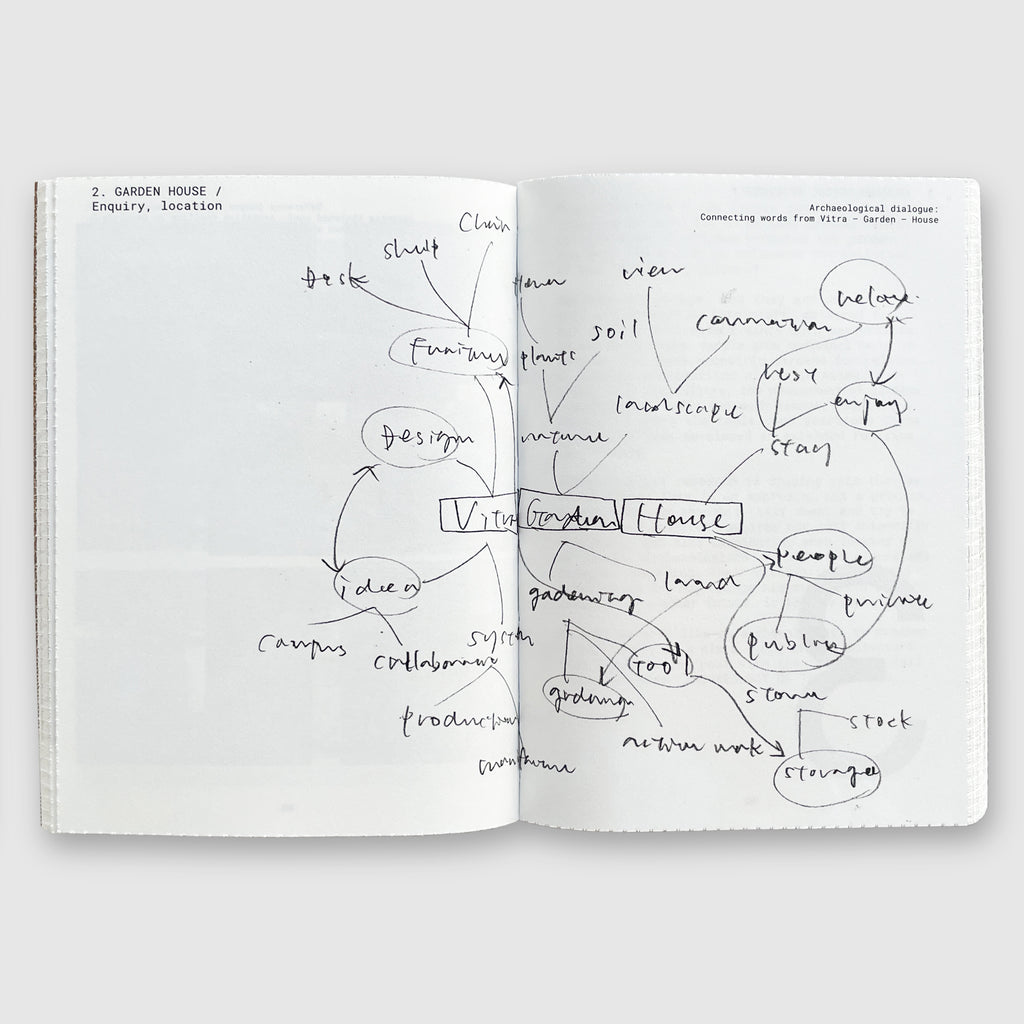 2. GARDEN HOUSE /
Enquiry, location
Archaeological dialogue:
Connecting words from Vitra – Garden – House
Chair
Desk
view
relax
soil
plants
landscape
rest
enjoy
Design
nature
stay
Vitra
Garden
House
people
idea
land
gadening
private
campus
system
public
collaboration
tool
stock
production
action work
storage